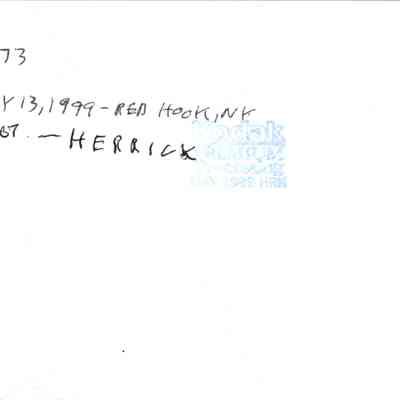 73
Y 13, 1999 - RED HOOK, NY
ET. — HERRICK
Kodak